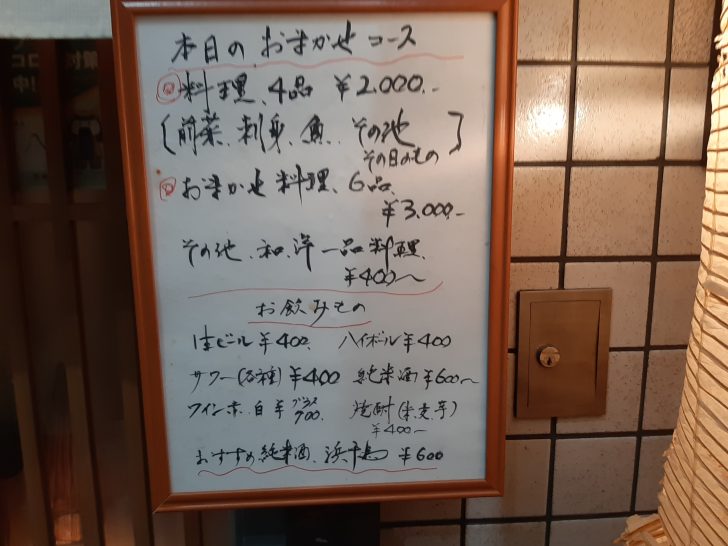 本日の おまかせコース
料理、4品 ¥2.000.-
[前菜、刺身、魚、その他
その日のもの]
おまかせ料理、6品、
¥3.000.-
その他、和、洋一品料理、
¥400〜
お飲みもの
生ビール ¥400. ハイボール ¥400
サワー(各種) ¥400 純米酒 ¥600〜
ワイン赤.白 グラス ¥700 焼酎(米麦芋)
¥400〜
おすすめ純米酒、浜千鳥 ¥600